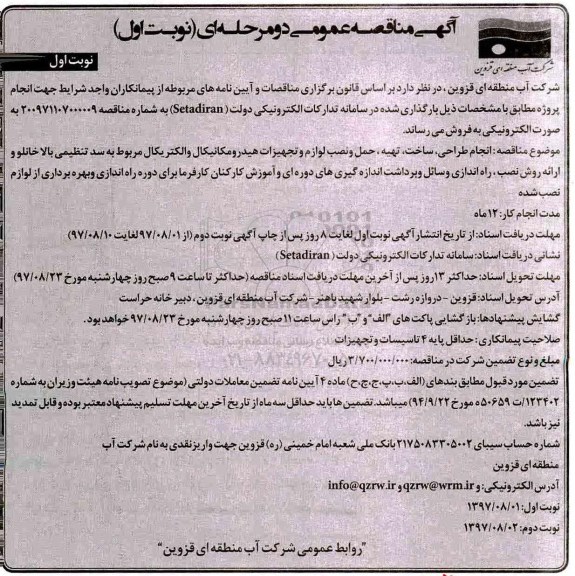 آگهی مناقصه عمومی دو مرحله ای (نوبت اول)
شرکت آب منطقه ای قزوین
نوبت اول
شرکت آب منطقه ای قزوین، در نظر دارد بر اساس قانون برگزاری مناقصات و آیین نامه های مربوطه از پیمانکاران واجد شرایط جهت انجام
پروژه مطابق با مشخصات ذیل بارگذاری شده در سامانه تدارکات الکترونیکی دولت (Setadiran) به شماره مناقصه ۲۰۰۹۷۱۱۰۷۰۰۰۰۰۹ به
صورت الکترونیکی به فروش می رساند.
موضوع مناقصه: انجام طراحی، ساخت، تهیه، حمل و نصب لوازم و تجهیزات هیدرومکانیکال والکتریکال مربوط به سد تنظیمی بالا خانلو و
ارائه روش نصب، راه اندازی وسائل وبرداشت اندازه گیری های دوره ای و آموزش کارکنان کارفرما برای دوره راه اندازی وبهره برداری از لوازم
نصب شده
مدت انجام کار: ۱۲ ماه
مهلت دریافت اسناد: از تاریخ انتشار آگهی نوبت اول لغایت ۸ روز پس از چاپ آگهی نوبت دوم (از ۹۷/۰۸/۰۱ لغایت ۹۷/۰۸/۱۰)
نشانی دریافت اسناد: سامانه تدارکات الکترونیکی دولت (Setadiran)
مهلت تحویل اسناد: حداکثر ۱۳ روز پس از آخرین مهلت دریافت اسناد مناقصه (حداکثر تا ساعت ۹ صبح روز چهارشنبه مورخ ۹۷/۰۸/۲۳)
آدرس تحویل اسناد: قزوین - دروازه رشت - بلوار شهید باهنر - شرکت آب منطقه ای قزوین، دبیر خانه حراست
گشایش پیشنهادها: باز گشایی پاکت های "الف" و "ب" راس ساعت ۱۱ صبح روز چهارشنبه مورخ ۹۷/۰۸/۲۳ خواهد بود.
صلاحیت پیمانکاری: حداقل پایه ۴ تاسیسات و تجهیزات
مبلغ و نوع تضمین شرکت در مناقصه: ۳/۷۰۰/۰۰۰/۰۰۰ ریال
تضمین مورد قبول مطابق بندهای (الف،ب،پ،ج،چ،ح) ماده ۴ آیین نامه تضمین معاملات دولتی (موضوع تصویب نامه هیئت وزیران به شماره
۱۲۳۴۰۲/ت ۵۰۶۵۹ ه مورخ ۹۴/۹/۲۲) میباشد. تضمین ها باید حداقل سه ماه از تاریخ آخرین مهلت تسلیم پیشنهاد معتبر بوده و قابل تمدید
نیز باشد.
شماره حساب سیبای ۲۱۷۵۰۸۳۳۰۵۰۰۲ بانک ملی شعبه امام خمینی (ره) قزوین جهت واریز نقدی به نام شرکت آب
منطقه ای قزوین
آدرس الکترونیکی: و qzrw@wrm.ir و info@qzrw.ir
نوبت اول: ۱۳۹۷/۰۸/۰۱
نوبت دوم: ۱۳۹۷/۰۸/۰۲
"روابط عمومی شرکت آب منطقه ای قزوین"